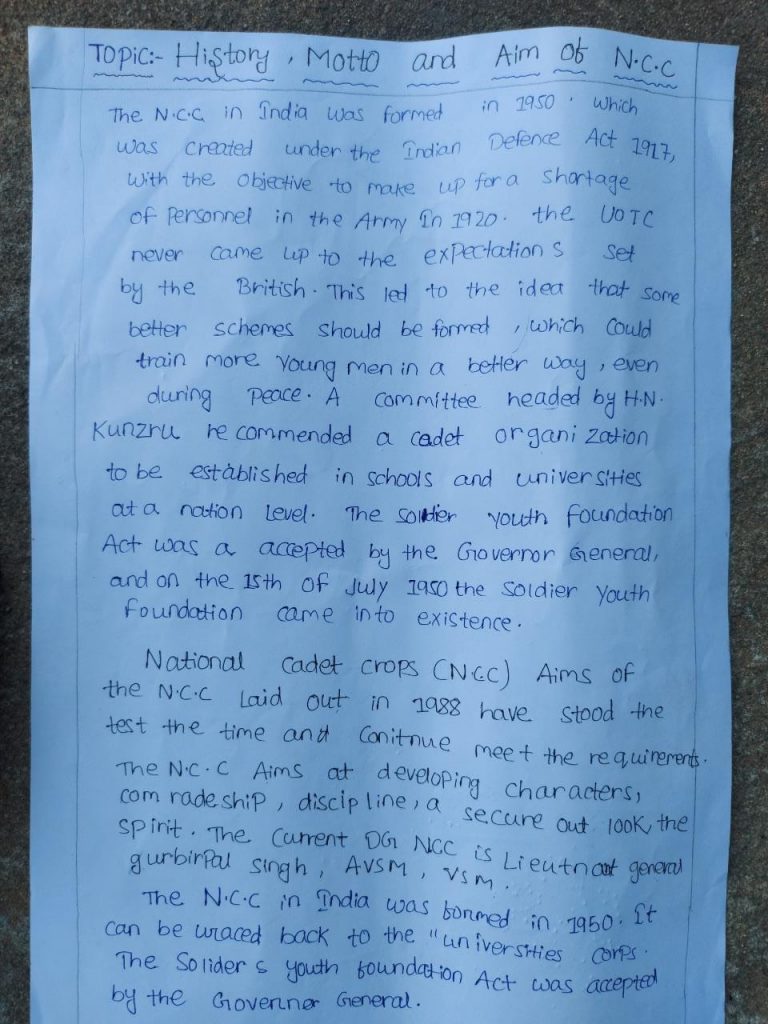 Topic:- History, Motto and Aim of N.C.C
The N.C.C. in India was formed in 1950. Which
was created under the Indian Defence Act 1917,
with the objective to make up for a shortage
of Personnel in the Army In 1920. the UOTC
never came up to the expectations set
by the British. This led to the idea that some
better schemes should be formed, which could
train more young men in a better way, even
during peace. A committee headed by H.N.
Kunzru recommended a cadet organization
to be established in schools and universities
at a nation level. The soldier youth foundation
Act was a accepted by the Governor General,
and on the 15th of July 1950 the soldier youth
foundation came into existence.
National cadet crops (NCC) Aims of
the N.C.C Laid out in 1988 have stood the
test the time and Conitnue meet the requirements.
The N.C.C Aims at developing characters,
comradeship, discipline, a secure out look, the
spirit. The Current DG NCC is Lieutnat general
gurbirpal singh, AVSM, VSM.
The N.C.C in India was formed in 1950. It
can be wraced back to the "universities corps.
The Soliders youth foundation Act was accepted
by the Governor General.